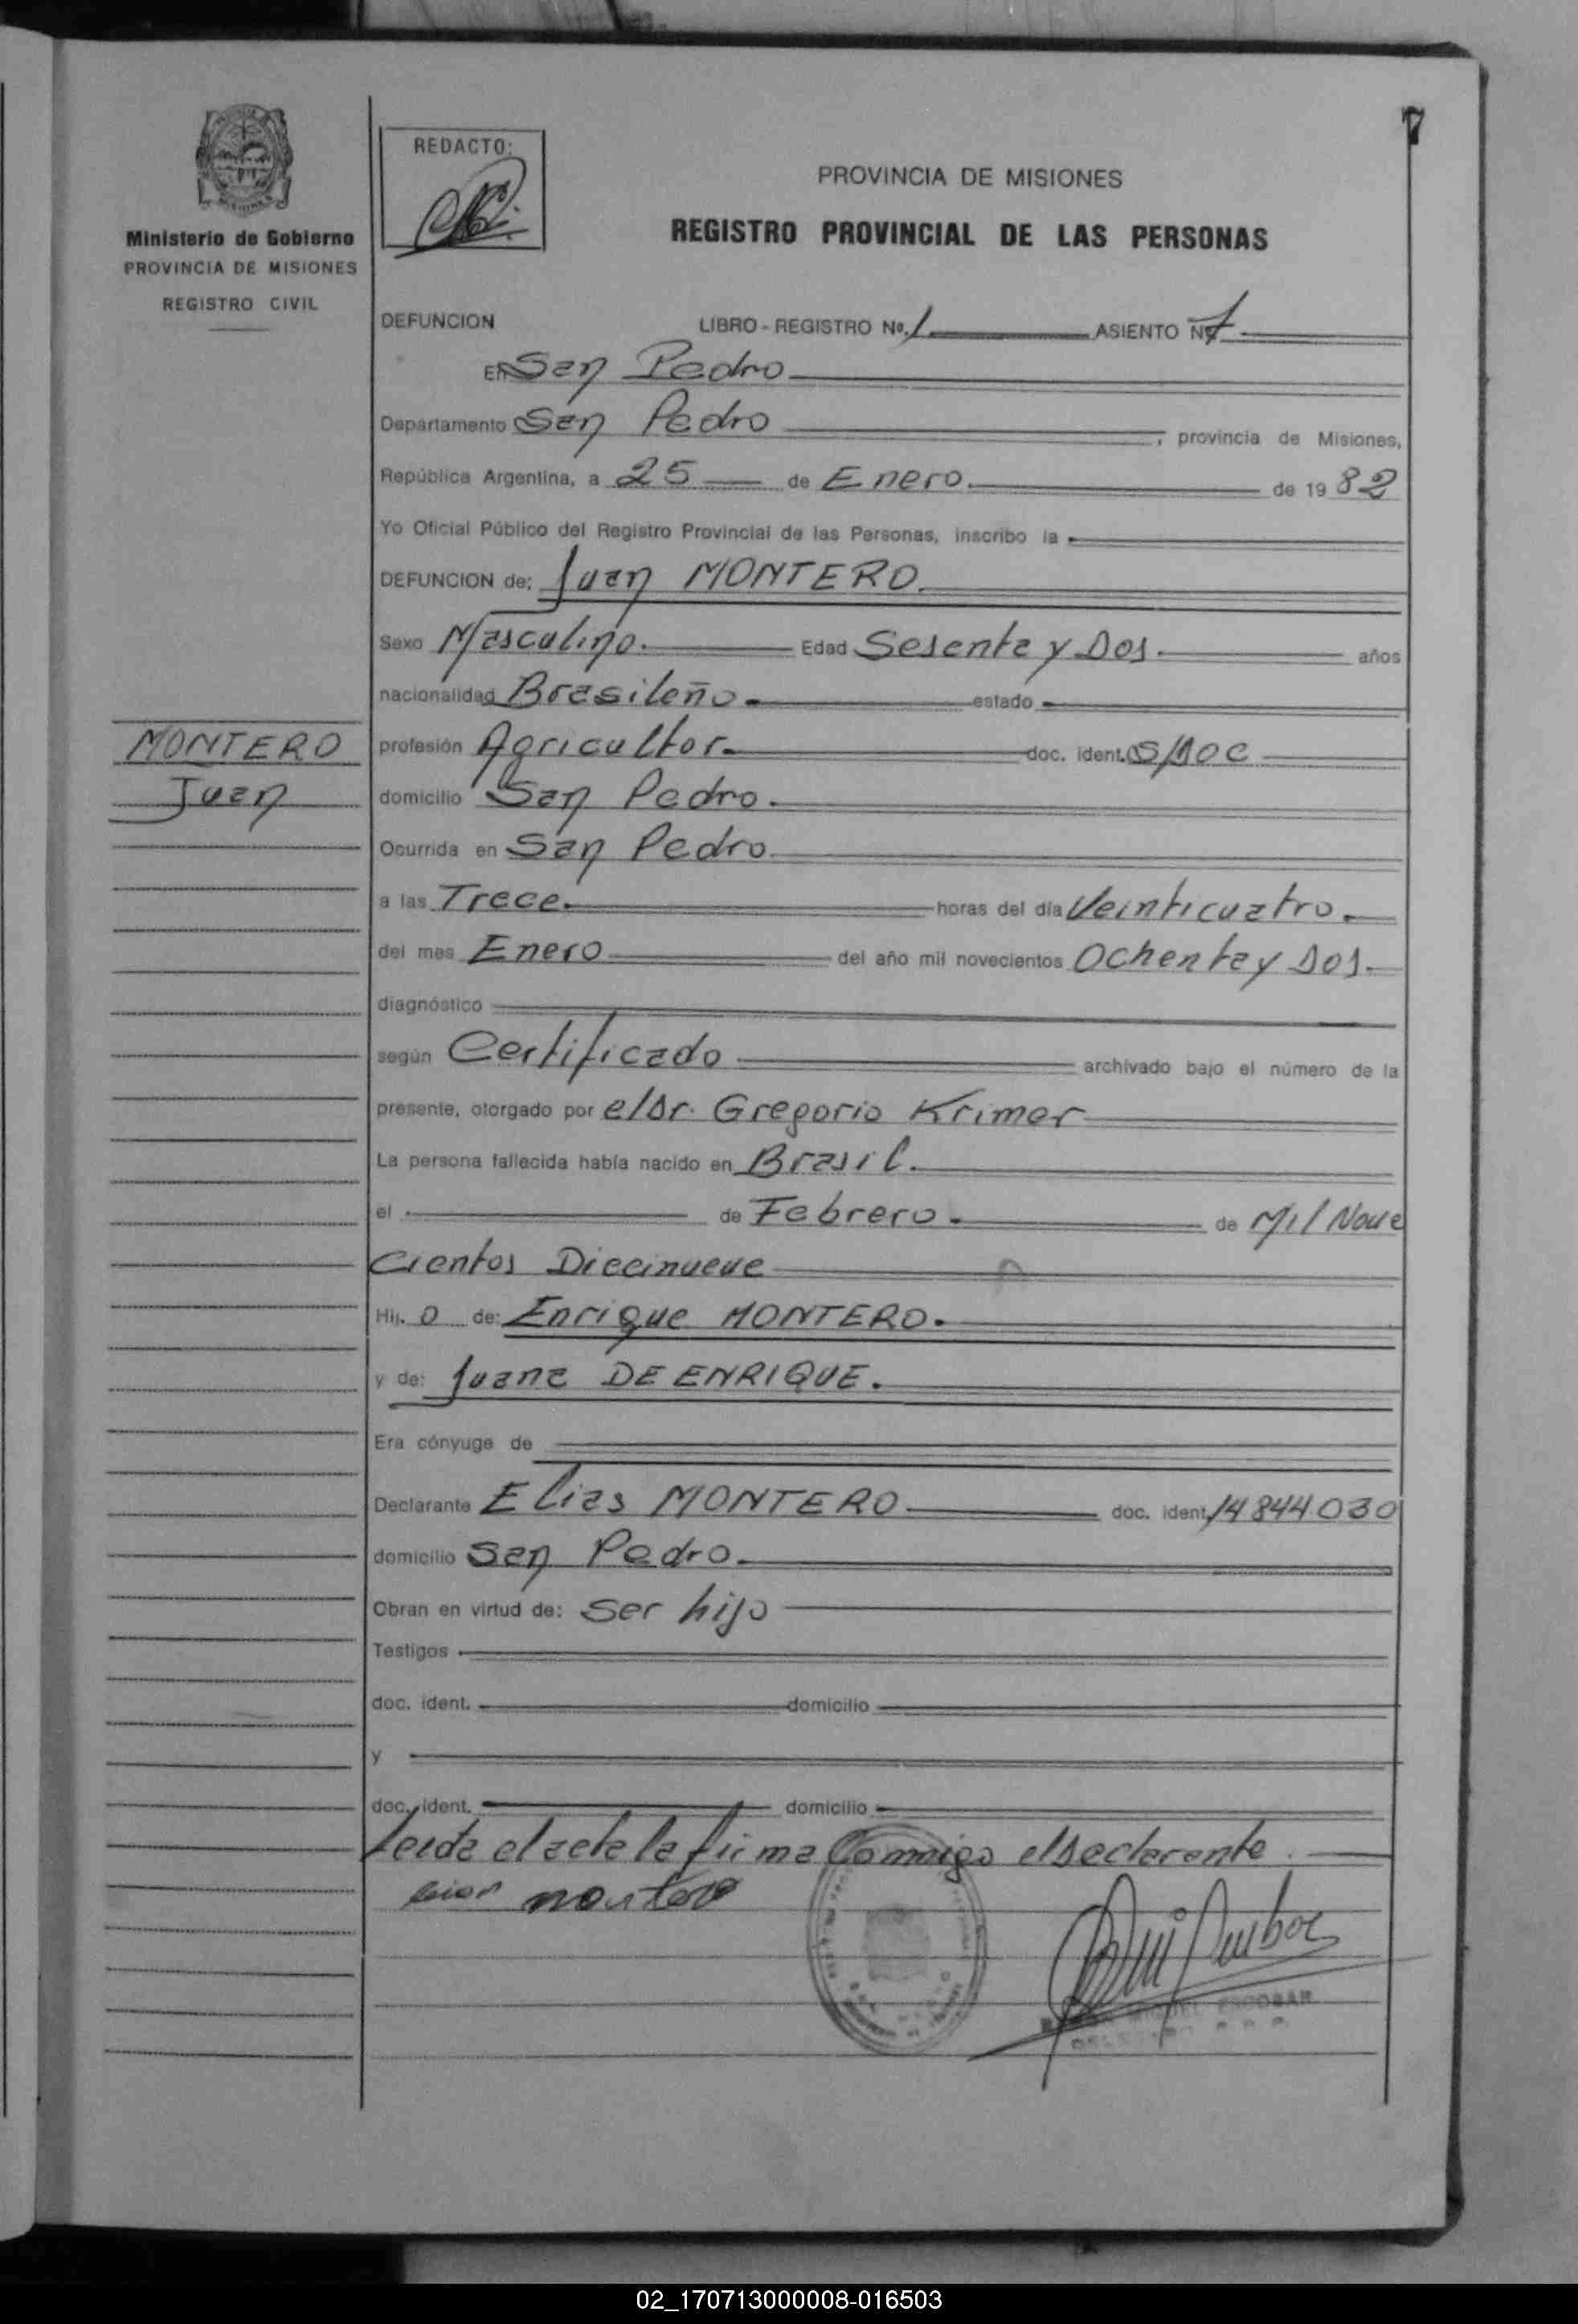 7
REDACTO:
PROVINCIA DE MISIONES
REGISTRO PROVINCIAL DE LAS PERSONAS
Ministerio de Gobierno
PROVINCIA DE MISIONES
REGISTRO CIVIL
DEFUNCION LIBRO - REGISTRO Nº. 1 ASIENTO Nº 7
En San Pedro
Departamento San Pedro, provincia de Misiones,
República Argentina, a 25 de Enero. de 19 82
Yo Oficial Público del Registro Provincial de las Personas, inscribo la
DEFUNCION de: Juan MONTERO.
Sexo Masculino. Edad Sesenta y Dos. años
nacionalidad Brasileño estado
MONTERO
Juan
profesión Agricultor. doc. ident. S/DOC
domicilio San Pedro.
Ocurrida en San Pedro.
a las Trece. horas del día Veinticuatro.
del mes Enero del año mil novecientos Ochenta y Dos.
diagnóstico
según Certificado archivado bajo el número de la
presente, otorgado por el Dr. Gregorio Krimer
La persona fallecida había nacido en Brasil.
el de Febrero. de Mil Nove
cientos Diecinueve
Hij. o de: Enrique MONTERO.
y de: Juana DE ENRIQUE.
Era cónyuge de
Declarante Elias MONTERO doc. ident. 14844.030
domicilio San Pedro.
Obran en virtud de: ser hijo
Testigos
doc. ident. domicilio
y
doc. ident. domicilio
Leida el acta la firma Conmigo el declarante.
montero
MIGUEL ESCOBAR
02_170713000008-016503